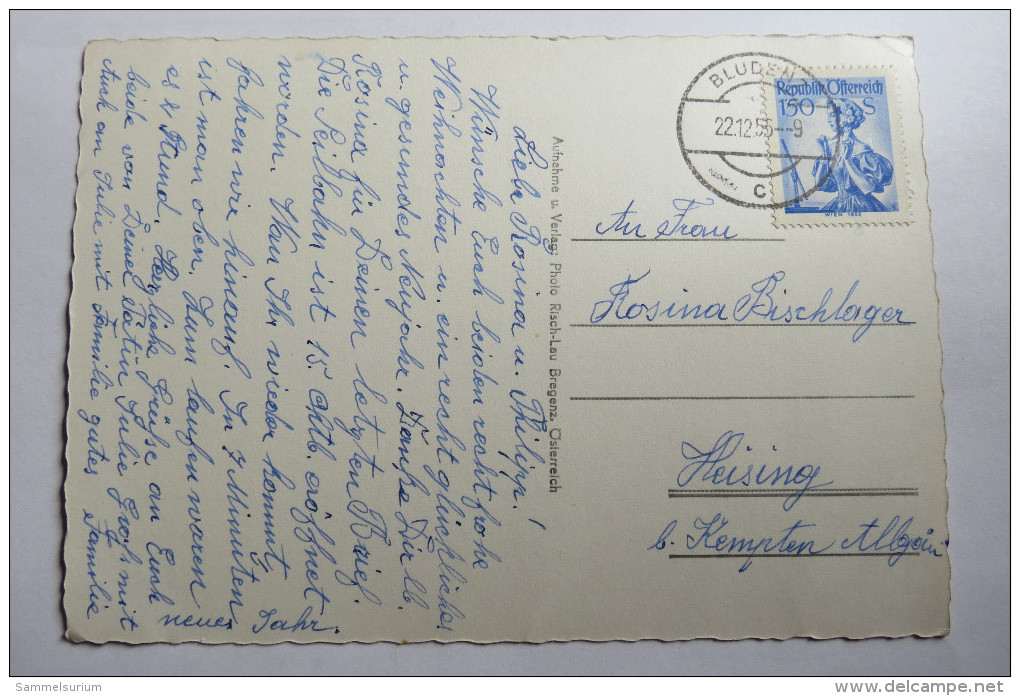 Liebe Rosina u. Philipp!
Wünsche Euch beiden recht frohe
Weihnachten u. ein recht glückliches
u. gesundes Neujahr. Danke Dir lb.
Rosina für Deinen letzten Brief.
Die Seilbahn ist 15. Oktb. eröffnet
worden. Wen Ihr wieder kommt,
fahren wir hinauf. In 7 Minuten
ist man oben. Zum laufen waren
es 2 Stund. Herzliche Grüße an Euch
beide von Deiner Julie
Auch am Julie mit Familie gutes
neues Jahr.
Aufnahme u. Verlag: Photo Risch-Lau Bregenz, Österreich
BLUDENZ
22.12.55--9
c
Republik Österreich
1'50 S
WIEN 1850
An Frau
Rosina Bischlager
Heising
b. Kempten Allgäu
Sammelsurium
delcampe.net